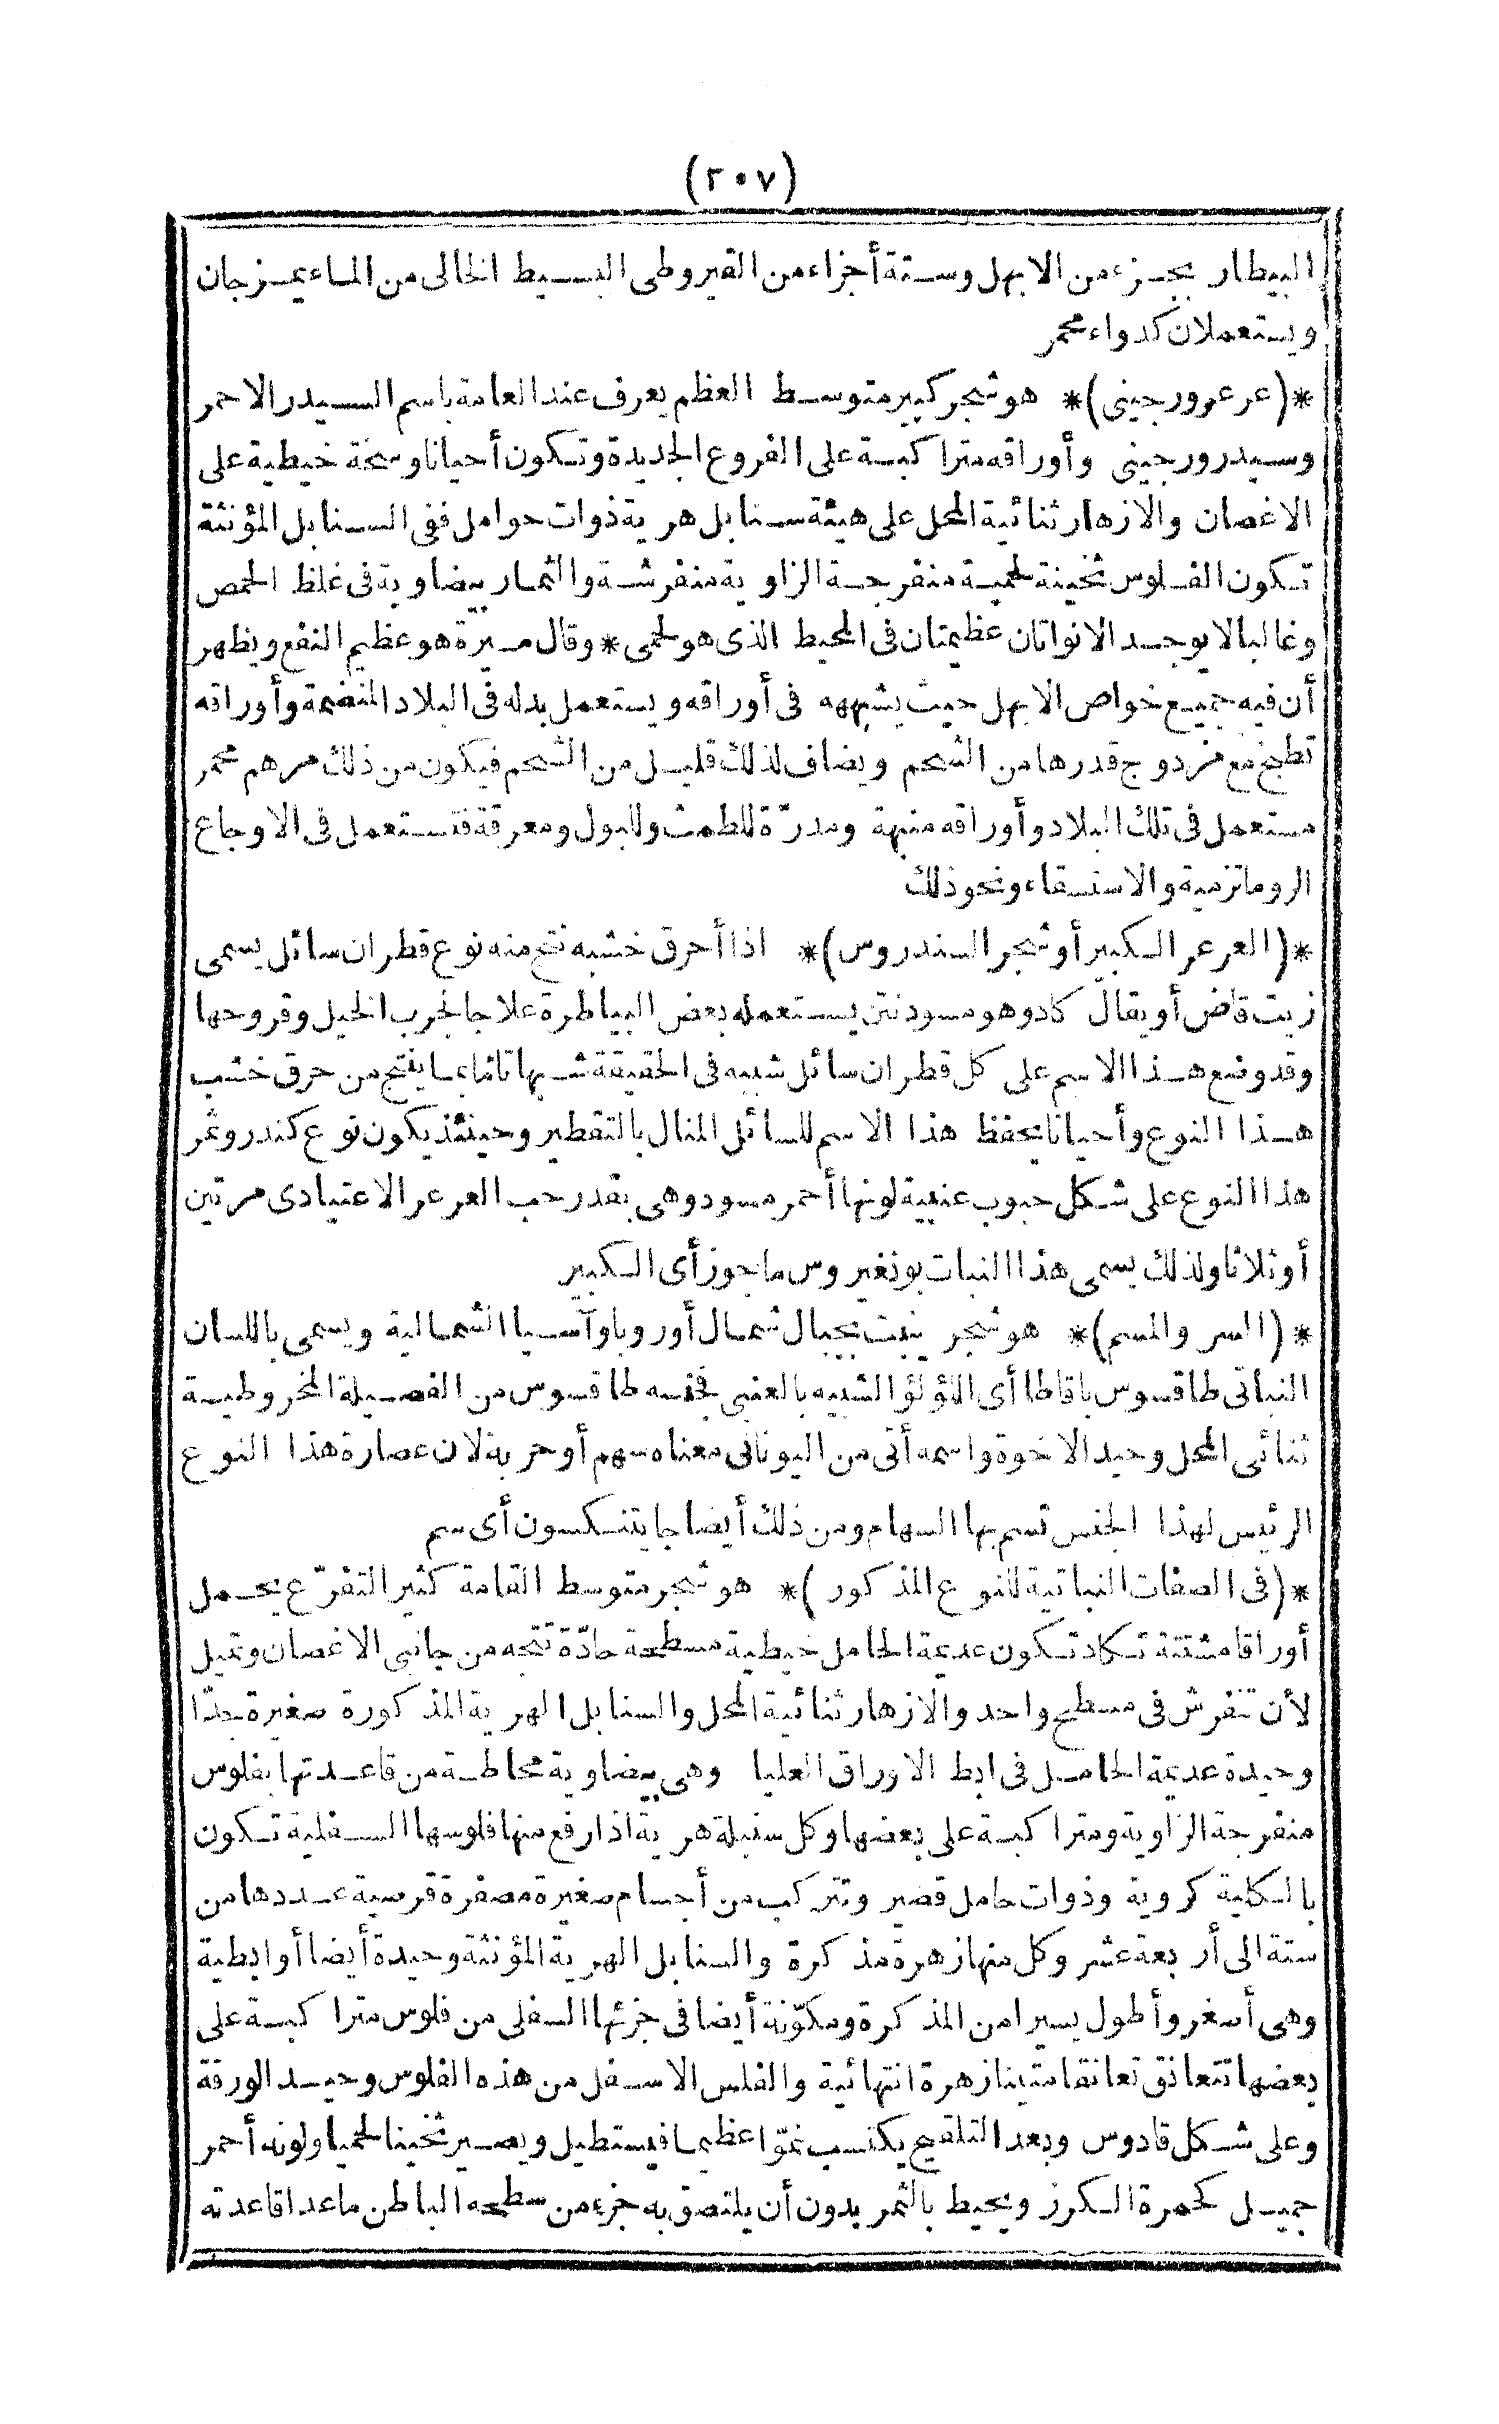 (٢٠٧)
البيطار بجزء من الابهل وستة أجزاء من القيروطى البسيط الخالى من الماء يمزجان
ويستعملان كدواء محمر
*(عرعر ورجينى)* هو شجر كبير متوسط العظم يعرف عند العامة باسم السيدر الاحمر
وسيدر ورجينى وأوراقه متراكبة على الفروع الجديدة وتكون أحيانا وسخة خيطية على
الاغصان والازهار ثنائية المحل على هيئة سنابل هرية ذوات حوامل ففى السنابل المؤنثة
تكون الفلوس ثخينة لحمية منفرجة الزاوية منفرشة والثمار بيضاوية فى غلظ الحمص
وغالبا لا يوجد الا نواتان عظيمتان فى المحيط الذى هو لحمى * وقال ميرة هو عظيم النفع ويظهر
أن فيه جميع خواص الابهل حيث يشبهه فى أوراقه ويستعمل بدله فى البلاد المنضمة وأوراقه
تطبخ مع مزدوج قدرها من الشحم ويضاف لذلك قليل من الشحم فيكون من ذلك مرهم محمر
مستعمل فى تلك البلاد وأوراقه منبهة ومدرّة للطمث وللبول ومعرقة فتستعمل فى الاوجاع
الروماتزمية والاستسقاء ونحو ذلك
*(العرعر الكبير أو شجر السندروس)* اذا أحرق خشبه نتج منه نوع قطران سائل يسمى
زيت قاض أو يقال كادو هو مسود نتن يستعمله بعض البياطرة علاجا لجرب الخيل وقروحها
وقد وضع هذا الاسم على كل قطران سائل شبيه فى الحقيقة شبها تامّا بما ينتج من حرق خشب
هذا النوع وأحيانا يحفظ هذا الاسم للسائل المنال بالتقطير وحينئذ يكون نوع كندر وثمر
هذا النوع على شكل حبوب عنبية لونها أحمر مسود وهى بقدر حب العرعر الاعتيادى مرتين
أو ثلاثا ولذلك يسمى هذا النبات يونغيروس ماجور أى الكبير
*(السر والمسم)* هو شجر ينبت بجبال شمال أوروبا وآسيا الشمالية ويسمى باللسان
النباتى طاقسوس باقاطا أى اللؤلؤ الشبيه بالعنبى فجنسه طاقسوس من الفصيلة المخروطية
ثنائى المحل وحيد الاخوة واسمه أتى من اليونانى معناه سهم أو حربة لان عصارة هذا النوع
الرئيس لهذا الجنس تسم بها السهام ومن ذلك أيضا جا يتنكسون أى سم
*(فى الصفات النباتية للنوع المذكور)* هو شجر متوسط القامة كثير التفرّع يحمل
أوراقا مشتتة تكاد تكون عديمة الحامل خيطية مسطحة حادّة تتجه من جانبى الاغصان وتميل
لأن تنفرش فى مسطح واحد والازهار ثنائية المحل والسنابل الهرية المذكورة صغيرة جدّا
وحيدة عديمة الحامل فى ابط الاوراق العليا وهى بيضاوية محاطة من قاعدتها بفلوس
منفرجة الزاوية ومتراكبة على بعضها وكل سنبلة هرية اذا رفع منها فلوسها السفلية تكون
بالكلية كروية وذوات حامل قصير وتتركب من أجسام صغيرة مصفرة قرصية عددها من
ستة الى أربعة عشر وكل منها زهرة مذكرة والسنابل الهرية المؤنثة وحيدة أيضا أو ابطية
وهى أصغر وأطول يسيرا من المذكرة ومكوّنة أيضا فى جزئها السفلى من فلوس متراكبة على
بعضها تتعانق تعانقا متينا زهرة انتهائية والفلس الاسفل من هذه الفلوس وحيد الورقة
وعلى شكل قادوس وبعد التلقيح يكتسب نموّا عظيما فيستطيل ويصير ثخينا لحميا ولونه أحمر
جميل كحمرة الكرز ويحيط بالثمر بدون أن يلتصق به جزء من سطحه الباطن ماعدا قاعدته